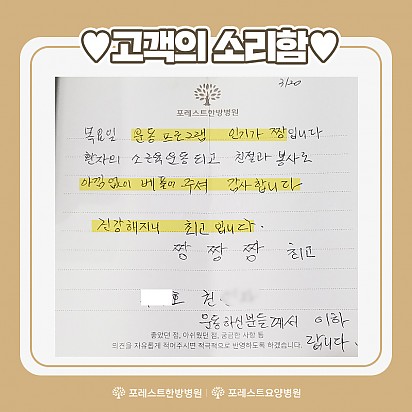 ♥고객의 소리함♥
3/20
포레스트한방병원
목요일 운동 프로그램 인기가 짱입니다
환자의 소근육운동 되고 친절과 봉사로
아낌없이 베풀어 주셔 감사합니다
건강해지니 최고입니다.
짱 짱 짱 최고
호 권
운동하신분들께서 이하
랍니다.
좋았던 점, 아쉬웠던 점, 궁금한 사항 등
의견을 자유롭게 적어주시면 적극적으로 반영하도록 하겠습니다.
포레스트한방병원 | 포레스트요양병원